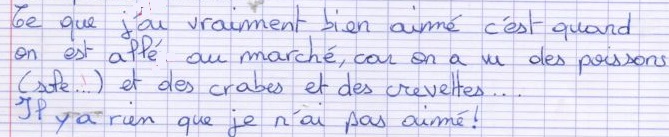 Ce que j'ai vraiment bien aimé c'est quand
on est allé au marché, car on a vu des poissons
(sole...) et des crabes et des crevettes...
Il y a rien que je n'ai pas aimé !